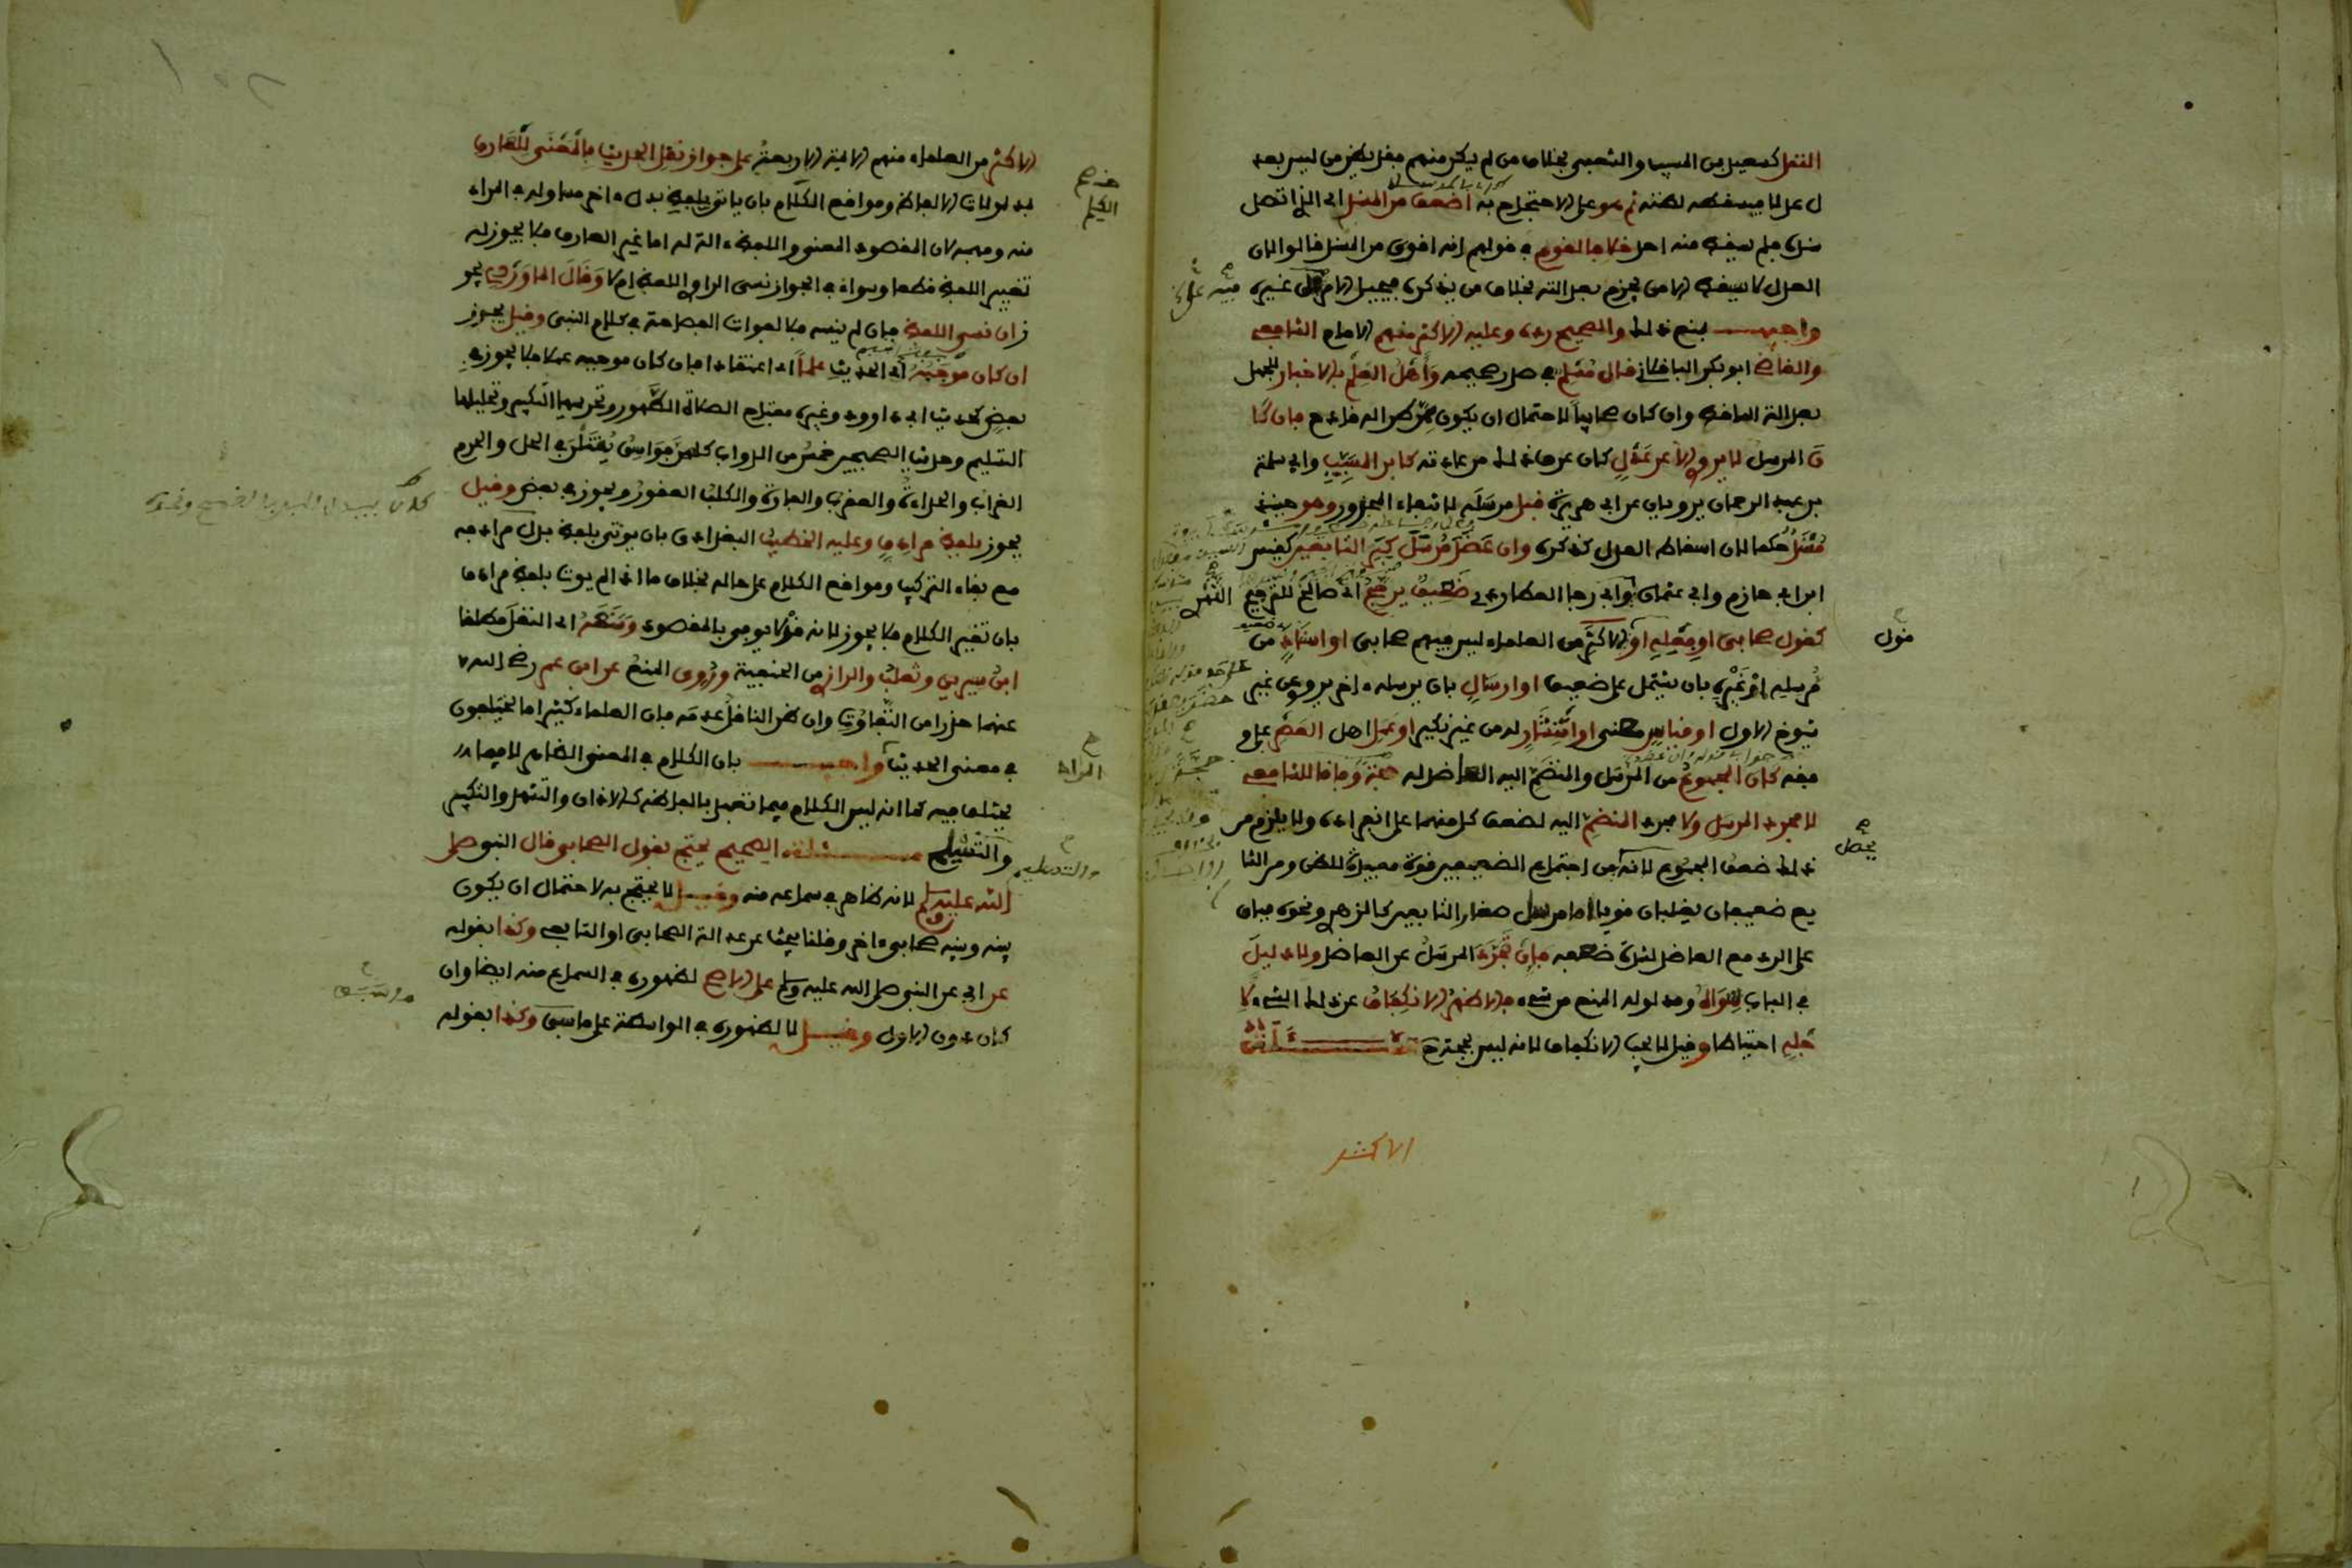 النقل كسعيد بن المسيب والشعبي بخلاف من لم يكن منهم فقد يظن من ليس بعد
ل عدلا فيسقطه لظنه ثم هو على الاحتجاج به اضعف من المسند اي الذي اتصل
سنده فلم يسقط منه احد خلافا لقوم في قولهم انه اقوى من المسند قالوا لان
العدل لا يسقط الا من يجزم بعدالته بخلاف من يذكره فيحيل الامر على غيره
واجيب بمنع ذلك والصحيح رده وعليه الاكثر منهم الامام الشافعي
والقاضي ابو بكر الباقلاني قال مسلم في صدر صحيحه واهل العلم بالاخبار للجهل
بعدالة الساقط وان كان صحابيا لاحتمال ان يكون ممن طرا له قادح فان كا
ن المرسل لا يروي الا عن عدل كان عرف ذلك من عادته كابن المسيب وابي سلمة
بن عبد الرحمان يرويان عن ابي هريرة قبل مرسله لانتفاء المحذور وهو حينئذ
مسند حكما لان اسقاط العدل كذكره وان عضد مرسل كبير التابعين كقيس
ابن ابي حازم وابي عثمان وابي رجا العطاردي ضعيف يرجح اي صالح للترجيح
كقول صحابي او فعله او الاكثر من العلماء ليس فيهم صحابي او اسناد من
مرسله او غيره بان يشتمل على ضعيف او ارسال بان يرسله ءاخر يروي عن غير
شيوخ الاول او قياس معنى او انتشار له من غير نكير او عمل اهل العصر على و
فقه كان المجموع من المرسل والمنضم اليه العاضد له حجة وفاقا للشافعي
لا مجرد المرسل ولا مجرد المنضم اليه لضعف كل منهما على انفراده ولا يلزم من
ذلك ضعف المجموع لانه من اجتماع الضعيفين قوة مفيدة للظن ومن الشا
يع ضعيفان يغلبان قويا اما مرسل صغار التابعين كالزهري ونحوه فباق
على الرد مع العاضد لشدة ضعفه فان تجرد المرسل عن العاضد ولا دليل
في الباب سواه ومدلوله المنع من شيء فالاظهر الانكفاف عن ذلك الشيء لا
جله احتياطا وقيل لا يجب الانكفاف لانه ليس بحجة ح مسئلة
الاكثر
قول
يحصل
الاكثر من العلماء منهم الايمة الاربعة على جواز نقل الحديث بالمعنى للعارف
بمدلولات الالفاظ ومواقع الكلام بان ياتي بلفظ بدل ءاخر مساو له في المراد
منه وفهمه لان المقصود المعنى واللفظ ءالة له اما غير العارف فلا يجوز له
تغيير اللفظ قطعا وسواء في الجواز نسى الراوي اللفظ ام لا وقال الماوردي يجو
ز ان نسي اللفظ فان لم ينسه فلا لفوات الفصاحة في كلام النبي وقيل يجوز
ان كان موجبه اي الحديث علما اي اعتقادا فان كان موجبه عملا فلا يجوز في
بعض كحديث ابي داوود وغيره مفتاح الصلاة الطهور وتحريمها التكبير وتحليلها
التسليم وحديث الصحيحين خمس من الدواب كلهن فواسق يقتلن في الحل والحرم
الغراب والحداة والعقرب والفارة والكلب العقور ويجوز في بعض وقيل
يجوز بلفظ مرادف وعليه الخطيب البغدادي بان يوتى بلفظ بدل مرادفه
مع بقاء التركيب ومواقع الكلام على حاله بخلاف ما اذا لم يوت بلفظ مرادف
بان تغير الكلام فلا يجوز لانه قد لا يوفي بالمقصود ومنعه اي النقل مطلقا
ابن سيرين وثعلب والرازي من الحنفية وروي المنع عن ابن عمر رضي الله
عنهما حذرا من التفاوت وان ظن الناقل عدمه فان العلماء كثيرا ما يختلفون
في معنى الحديث واجيب بان الكلام في المعنى الظاهر لا فيما
يختلف فيه كما انه ليس الكلام فيما تعبد بالفاظه كالاذان والتشهد والتكبير
والتسليم مسئلة الصحيح يحتج بقول الصحابي قال النبي صلى
الله عليه وسلم لانه ظاهر في سماعه منه وقيل لا يحتج به لاحتمال ان يكون
بينه وبينه صحابي ءاخر وقلنا يبحث عن عدالة الصحابي او التابعي وكذا بقوله
عن اي عن النبي صلى الله عليه وسلم على الاصح لظهوره في السماع منه ايضا وان
كان دون الاول وقيل لا لظهوره في الواسطة على ما سبق وكذا بقوله
الكلم
المراد